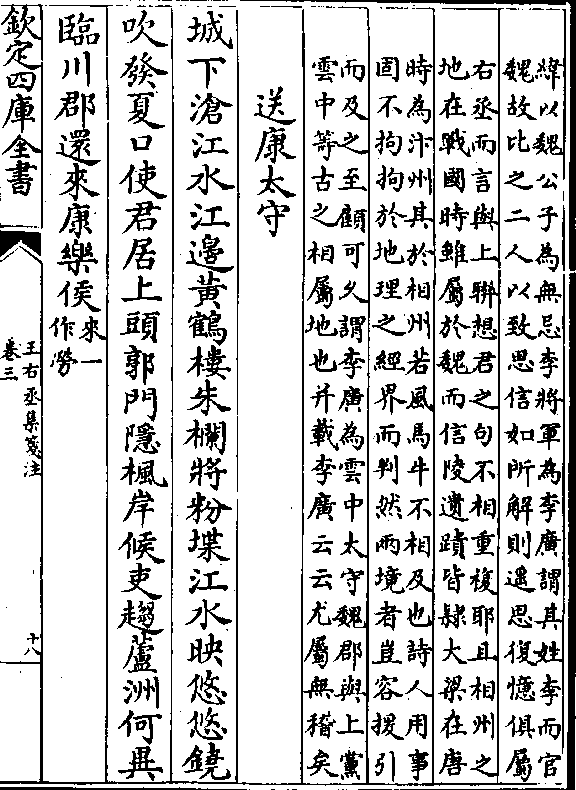 緯以魏公子為無忌李將軍為李廣謂其姓李而官
魏故比之二人以致思信如所解則遥思復憶俱屬
右丞而言與上聯想君之句不相重複耶且相州之
地在戰國時雖屬於魏而信陵遺蹟皆隷大梁在唐
時為汴州其於相州若風馬牛不相及也詩人用事
固不拘拘於地理之經界而判然兩境者豈容援引
而及之至顧可乆謂李廣為雲中太守魏郡與上黨
雲中等古之相屬地也并載李廣云云尤屬無稽矣
送康太守
城下滄江水江邊黃鶴樓朱欄將粉堞江水映悠悠鐃
吹發夏口使君居上頭郭門隱楓岸候吏趨蘆洲何異
臨川郡還來康樂侯來一作勞
欽定四庫全書
王右丞集箋注
卷三
十八